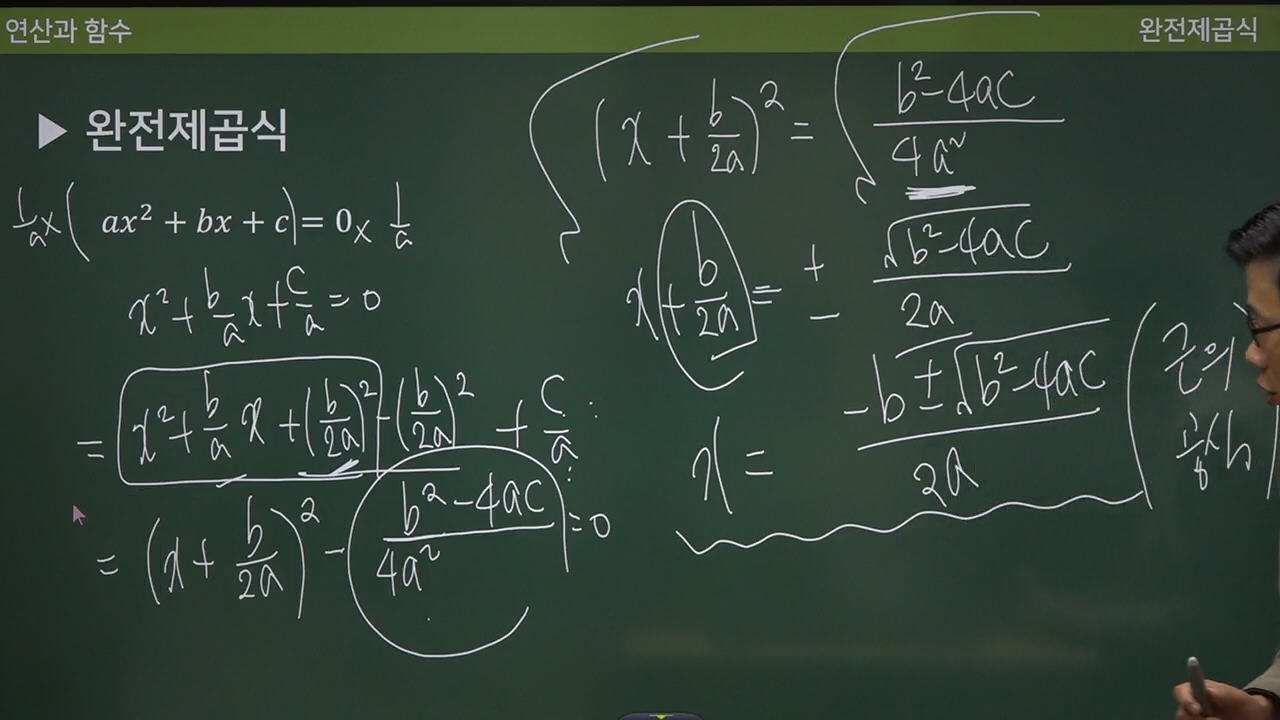 연산과 함수
완전제곱식
▶ 완전제곱식
1/a × ( ax² + bx + c ) = 0 × 1/a
x² + b/a x + c/a = 0
= x² + b/a x + (b/2a)² - (b/2a)² + c/a
= (x + b/2a)² - (b² - 4ac)/4a² = 0
(x + b/2a)² = (b² - 4ac)/4a²
x + b/2a = ± √(b² - 4ac)/2a
x = (-b ± √(b² - 4ac))/2a
(근의
공식)